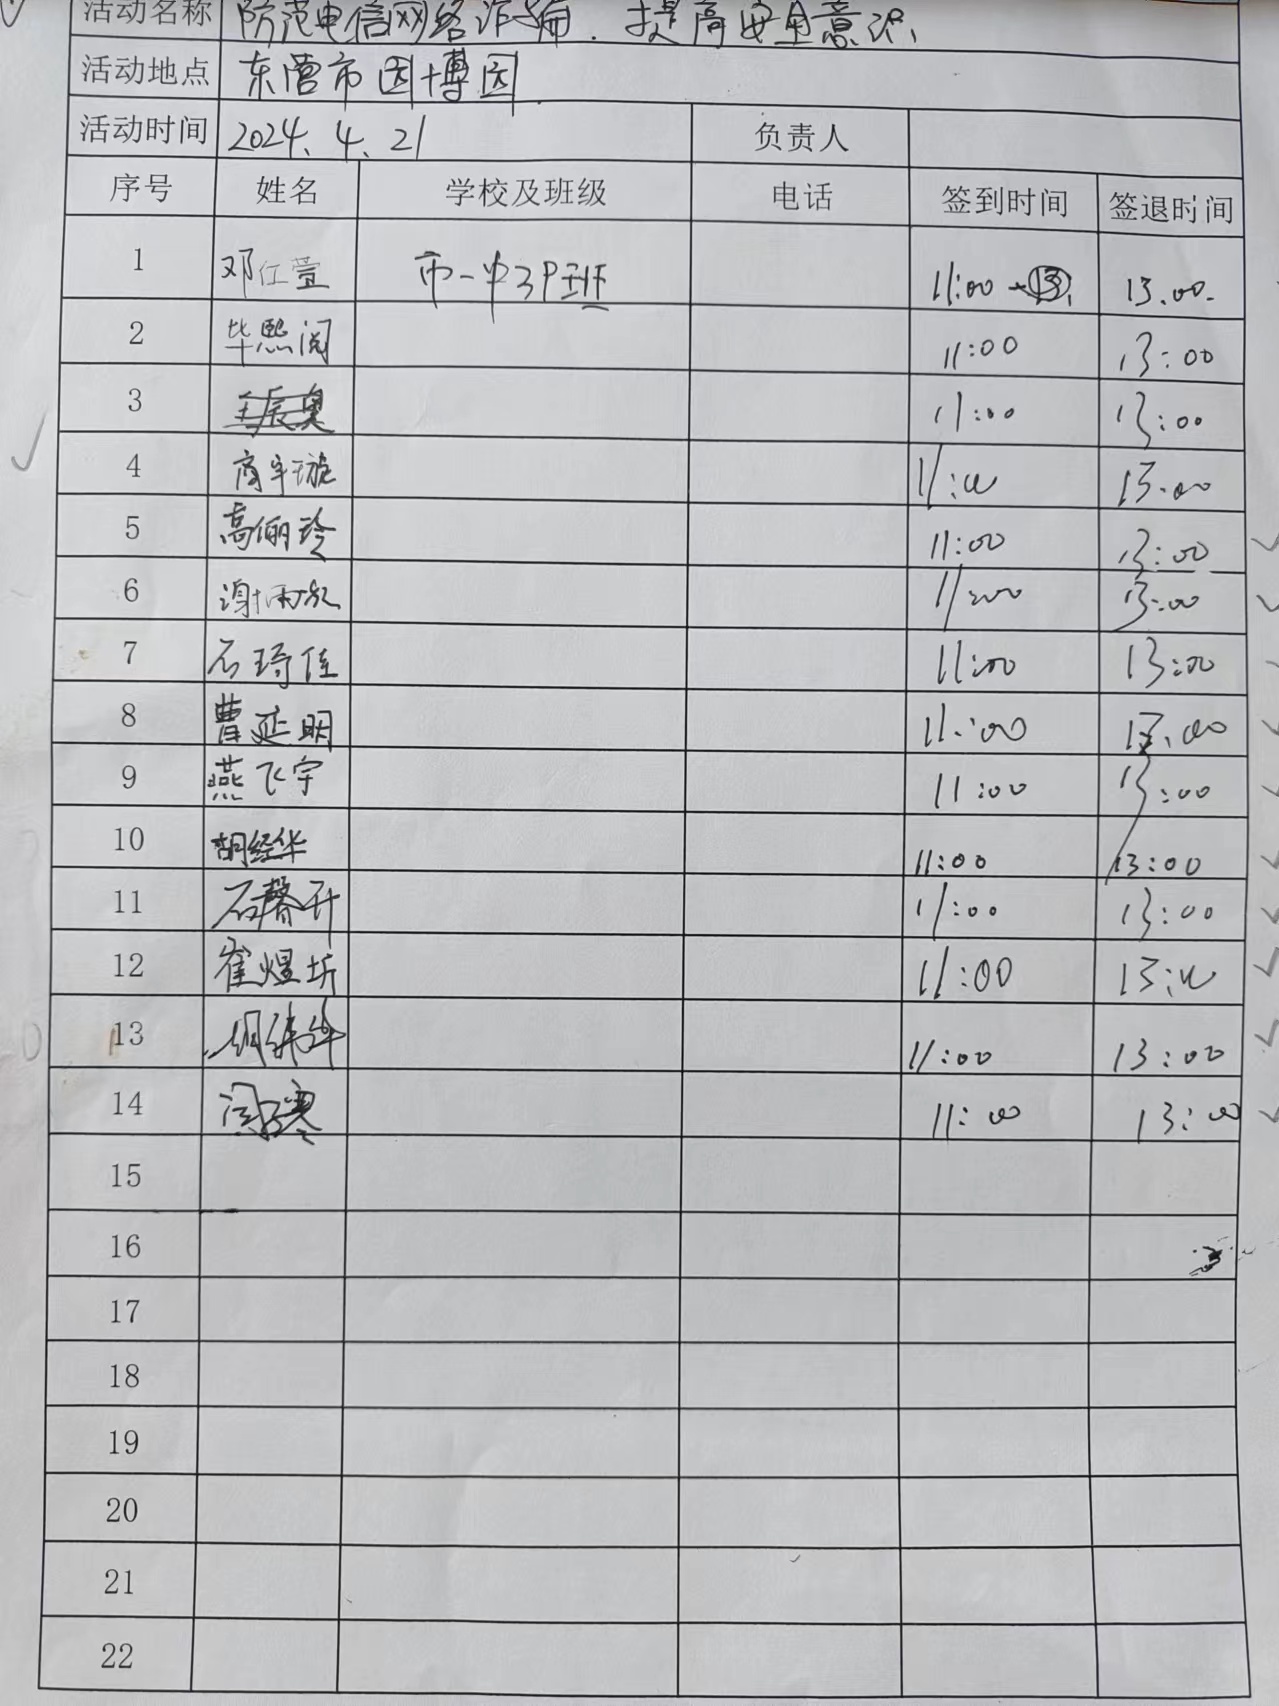 活动名称 防范电信网络诈骗.提高安全意识
活动地点 东营市园博园
活动时间 2024.4.21 负责人
序号 姓名 学校及班级 电话 签到时间 签退时间
1 邓仁萱 市一中39班 11:00 13.00.
2 毕熙阅 11:00 13:00
3 王辰奥 11:00 13:00
4 商宇璇 11:00 13:00
5 高俪玲 11:00 13:00
6 谢雨 11:00 13:00
7 石琦佳 11:00 13:00
8 曹延明 11:00 13:00
9 燕飞宇 11:00 13:00
10 胡经华 11:00 13:00
11 石馨升 11:00 13:00
12 崔煜 11:00 13:00
13 11:00 13:00
14 闫寒 11:00 13:00
15
16
17
18
19
20
21
22